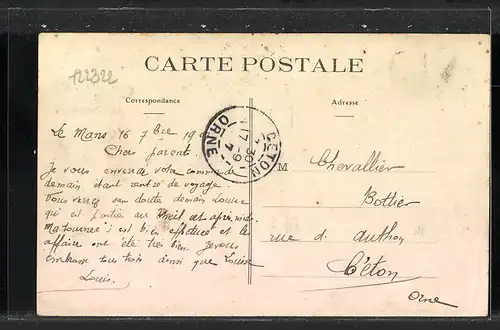 122322
CARTE POSTALE
Correspondance
Adresse
CETON
ORNE
Le Mans 16 7bre 19
Chers parents
Je vous enverrai votre commande
demain étant rentré de voyage
Vous verrez sans doute demain Louise
qui est partie au Theil cet après-midi
Ma tournée s'est bien effectuée et les
affaires ont été très bien Je vous
embrasse tous trois ainsi que Louise
Louis.
M Chevallier
Bottier
rue d. Authon
Céton
Orne